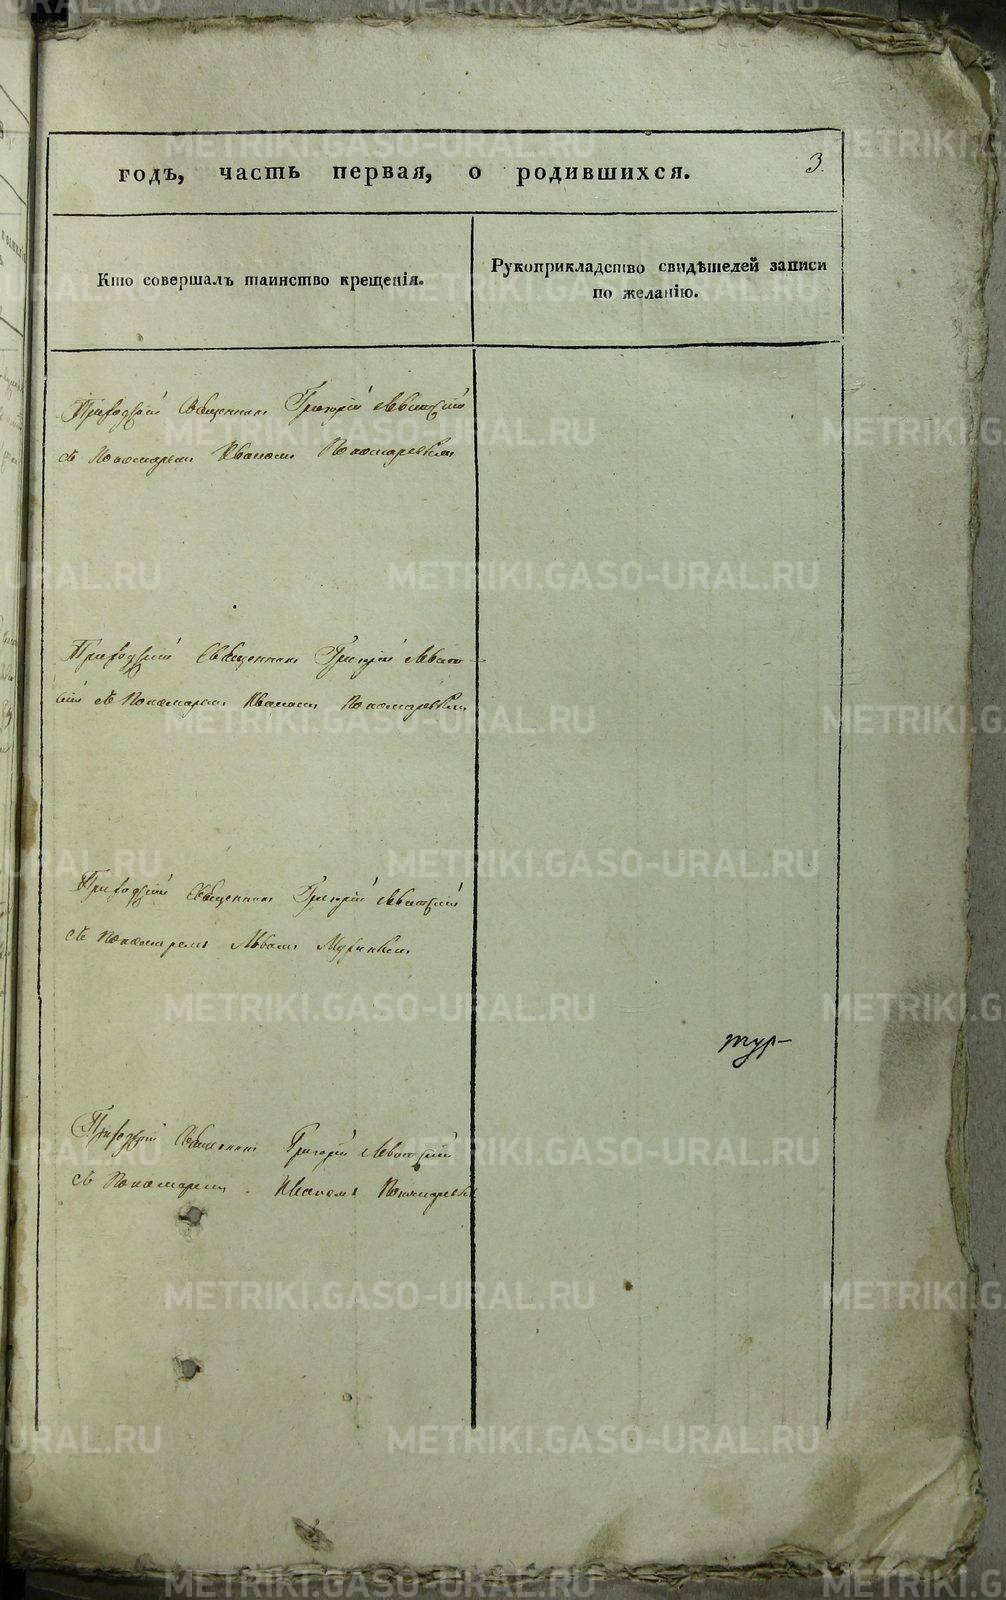 годъ, часть первая, о родившихся.
3.
Кто совершалъ таинство крещенія.
Рукоприкладство свидѣтелей записи
по желанію.
Приходскій Священникъ Григорій Левитскій
съ Пономаремъ Иваномъ Пономаревымъ
Приходскій Священникъ Григорій Левит-
скій съ Пономаремъ Иваномъ Пономаревымъ
Приходскій Священникъ Григорій Левитскій
съ Пономаремъ
Приходскій Священникъ Григорій Левитскій
съ Пономаремъ Иваномъ Пономаревы
METRIKI.GASO-URAL.RU